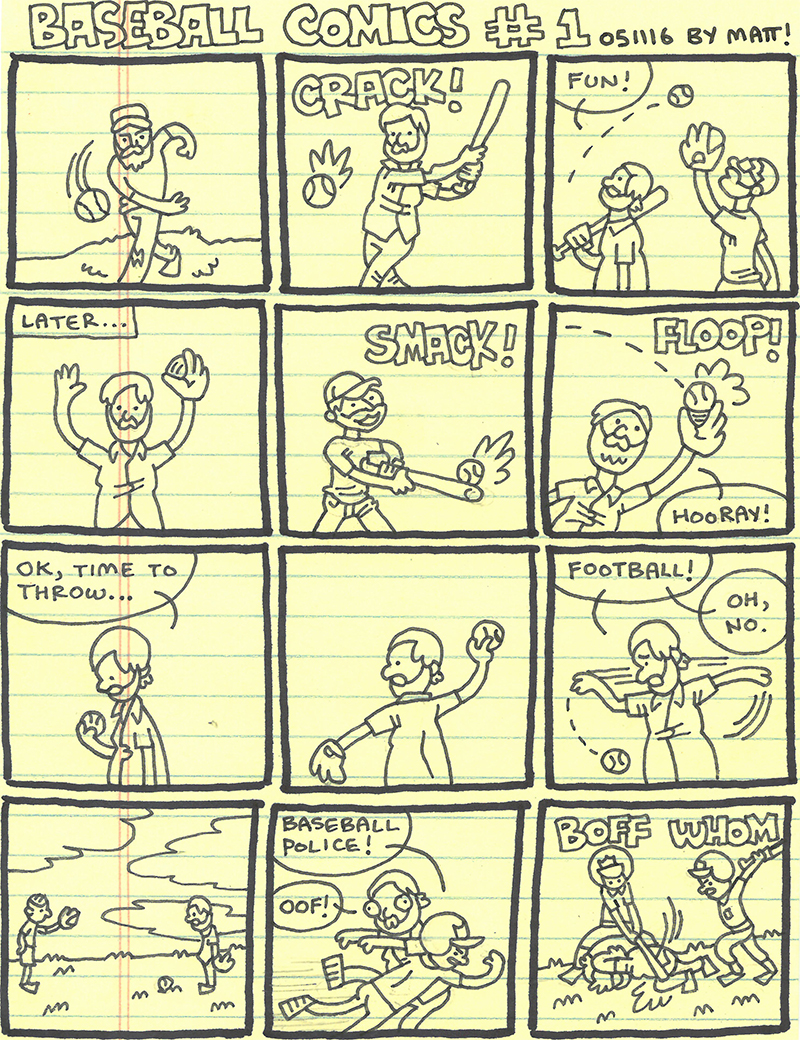 BASEBALL COMICS #1 051116 BY MATT!
CRACK!
FUN!
LATER...
SMACK!
FLOOP!
HOORAY!
OK, TIME TO
THROW...
FOOTBALL!
OH,
NO.
BASEBALL
POLICE!
OOF!
BOFF WHOM